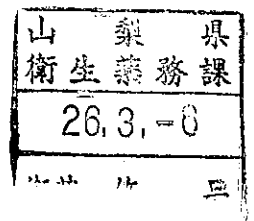 山梨県
衛生薬務課
26.3.-6